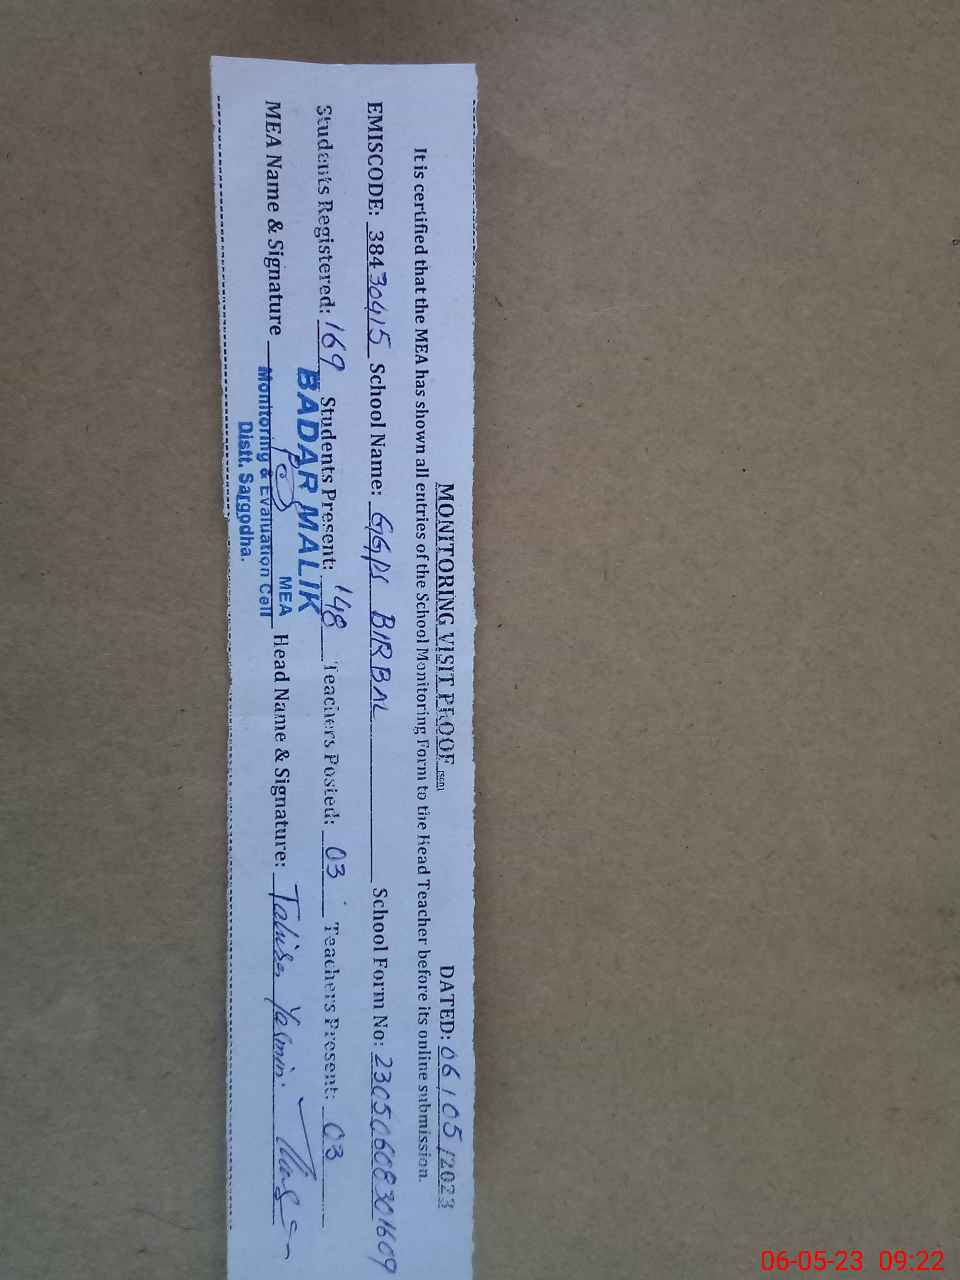 MONITORING VISIT PROOF (SGD) DATED: 06/05/2023
It is certified that the MEA has shown all entries of the School Monitoring Form to the Head Teacher before its online submission.
EMISCODE: 38430415 School Name: GGPS BIRBAL School Form No: 23050608301609
Students Registered: 169 Students Present: 148 Teachers Posted: 03 Teachers Present: 03
BADAR MALIK
MEA
MEA Name & Signature Head Name & Signature: Yasmin
Monitoring & Evaluation Cell
Distt. Sargodha.
06-05-23 09:22